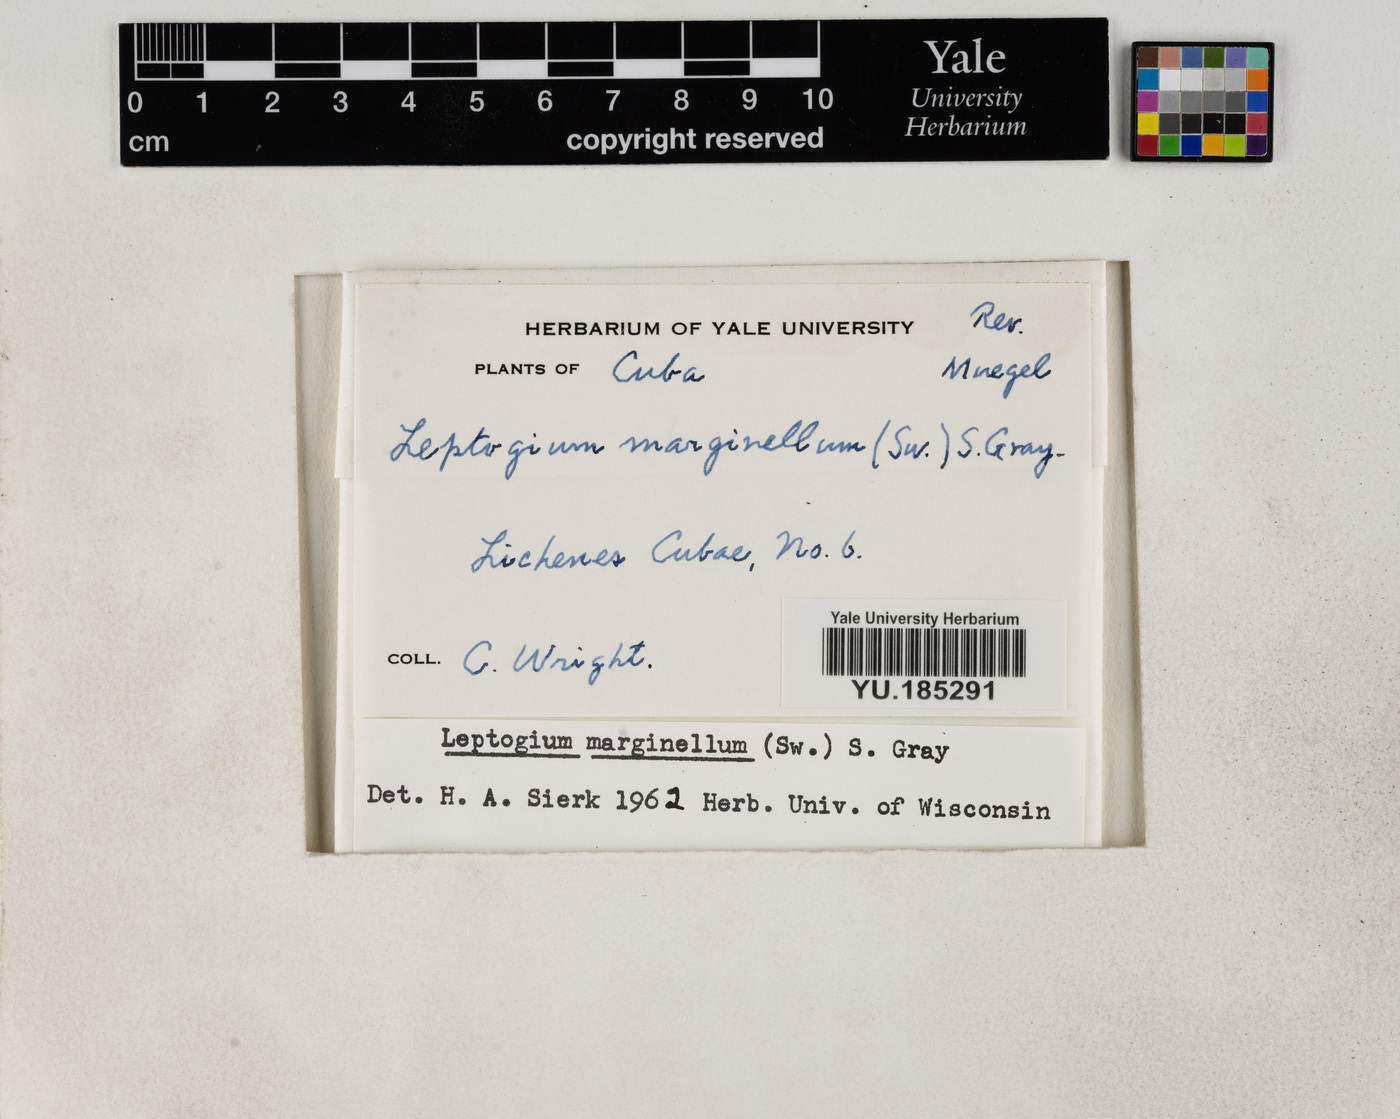 0 1 2 3 4 5 6 7 8 9 10
cm
copyright reserved
Yale
University
Herbarium
HERBARIUM OF YALE UNIVERSITY
Rev.
PLANTS OF Cuba
Muegel
Leptogium marginellum (Sw.) S. Gray.
Lichenes Cubae, No. 6.
COLL. C. Wright.
Yale University Herbarium
YU.185291
Leptogium marginellum (Sw.) S. Gray
Det. H. A. Sierk 1962 Herb. Univ. of Wisconsin